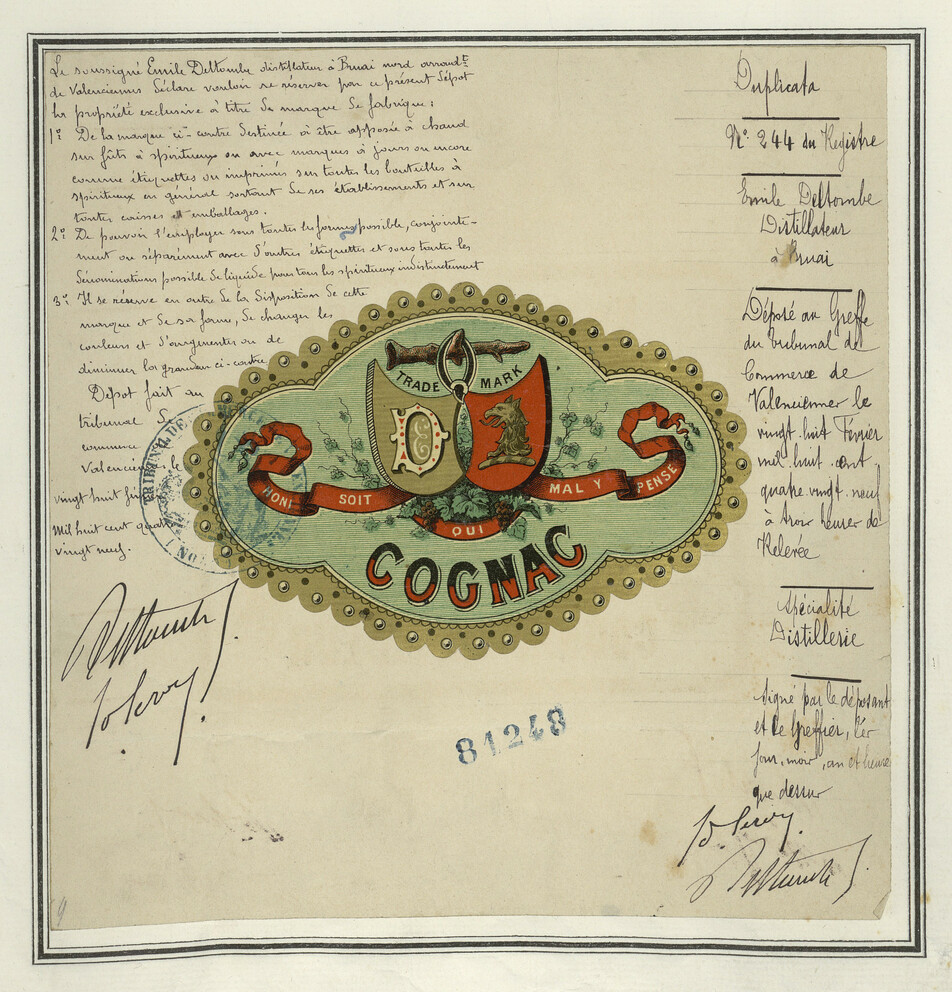 Le soussigné Emile Deltombe distillateur à Bruai nord arrondt
de Valenciennes déclare vouloir se réserver par ce présent dépot
la propriété exclusive à titre de marque de fabrique :
1º: De la marque ci-contre destinée à être apposée à chaud
sur fûts à spiritueux ou avec marques à jours ou encore
comme étiquettes ou imprimés sur toutes les bouteilles à
spiritueux en général sortant de ses établissements et sur
toutes caisses et emballages.
2º: De pouvoir l'employer sous toutes les formes possible, conjointe-
ment ou séparément avec d'autres étiquettes et sous toutes les
dénominations possible de liquide pour tous les spiritueux indistinctement
3º: Il se réserve en outre de la disposition de cette
marque et de sa forme, de changer les
couleurs et d'augmenter ou de
diminuer la grandeur ci-contre
Dépot fait au
tribunal de
commerce
Valenciennes le
vingt huit
mil huit cent quatre
vingt neuf.
Deltombe
TRADE MARK
D
HONI SOIT QUI MAL Y PENSE
COGNAC
81248
Duplicata
Nº 244 du Registre
Emile Deltombe
Distillateur
à Bruai
Déposé au Greffe
du tribunal de
Commerce de
Valenciennes le
vingt huit Février
mil huit cent
quatre vingt neuf
à trois heures de
Relevée
Spécialité
Distillerie
Signé par le déposant
et le Greffier, les
jour, mois, an et heure
que dessus
Deltombe